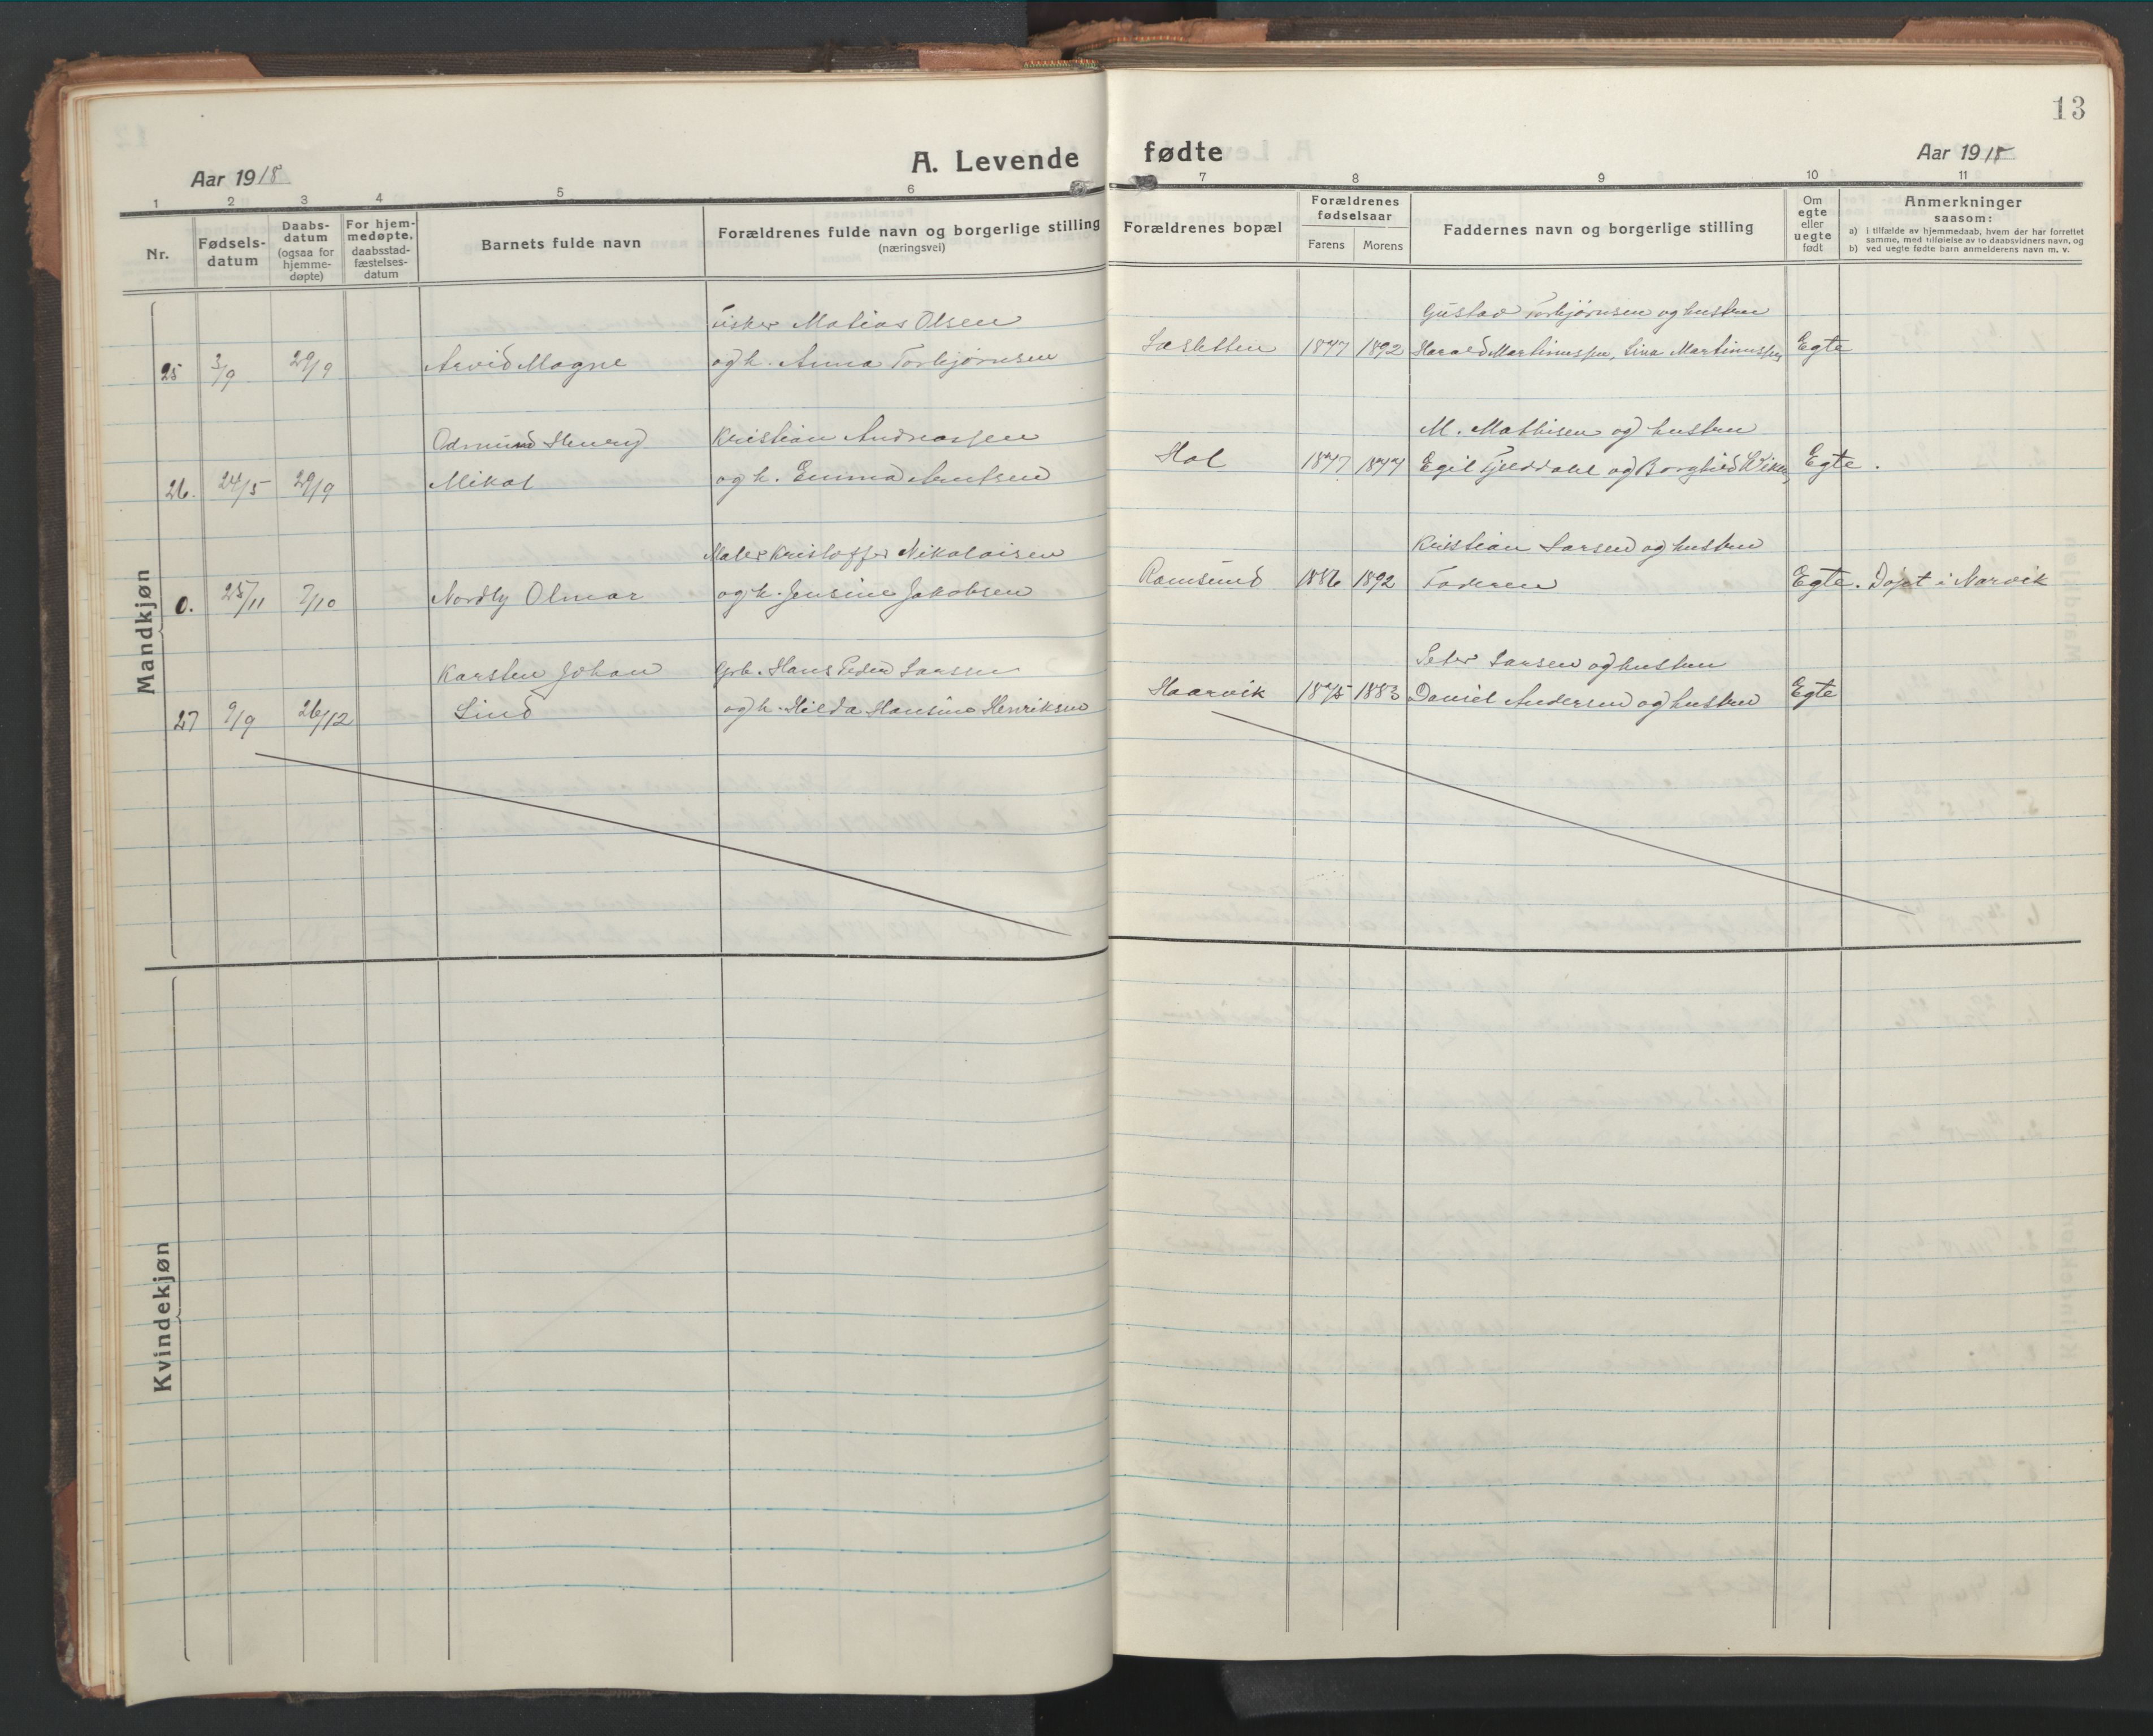 13
Aar 1918
A. Levende
fødte
Aar 1918
1 2 3 4 5 6 7 8 9 10 11
Nr.
Fødsels-
datum
Daabs-
datum
(ogsaa for
hjemme-
døpte)
For hjem-
medøpte.
daabsstad-
fæstelses-
datum
Barnets fulde navn
Forældrenes fulde navn og borgerlige stilling
(næringsvei)
Forældrenes bopæl
Forældrenes
fødselsaar
Farens Morens
Faddernes navn og borgerlige stilling
Om
egte
eller
uegte
født
Anmerkninger
saasom:
a) i tilfælde av hjemmedaab, hvem der har forrettet
samme, med tilføielse av to daabsvidners navn, og
b) ved uegte fødte barn anmelderens navn m. v.
Mandkjøn
Fisker Matias Olsen Gustav Torbjørnsen og hustru
25 3/9 29/9 Arvid Magne og h. Anna Torbjørnsen 1892 Harald Martinussen, Lina Martinussen Egte
Odmund Henry Kristian Andreassen M. Mathisen og hustru
26. 24/5 29/9 Mikal og h. Emma Hol Egil Fjelddahl og Borghild Egte.
Maler Kristoffer Nikolaisen Kristian Larsen og hustru
0. 25/11 7/10 Nordly Olmar og h. Jensine Jakobsen Ramsund 1886 1892 Faderen Egte. Døpt i Narvik
Karsten Johan Grb. Hans Peder Larssen Peter Larsen og hustru
27 9/9 26/12 Lind og h. Hilda Hansine Henriksen Haarvik 1875 1883 Daniel Andersen og hustru Egte
Kvindekjøn